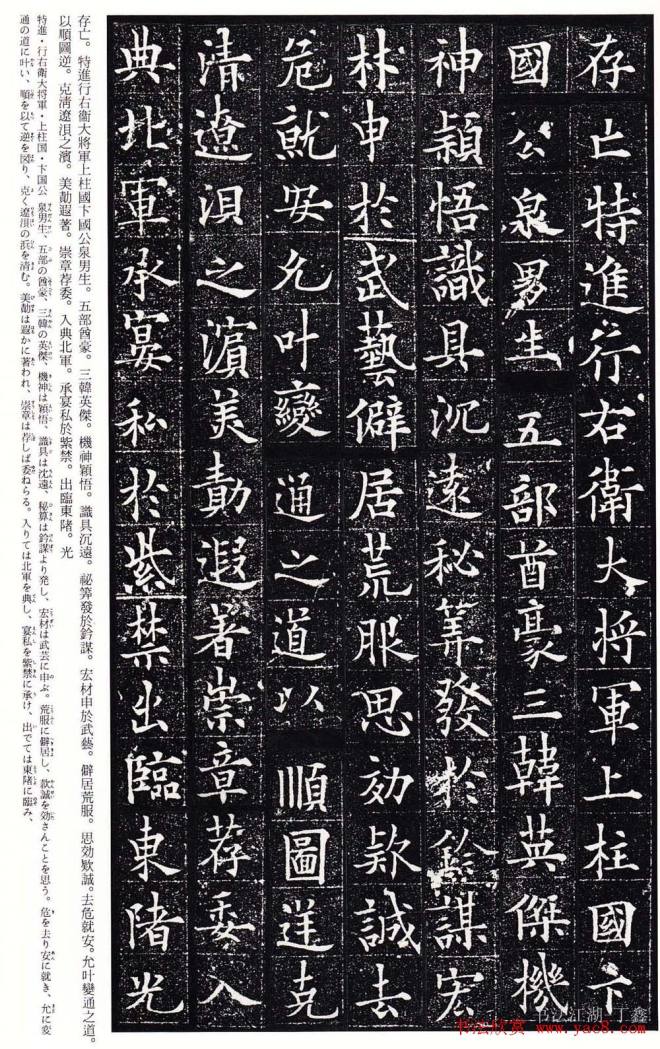 存亡特進行右衛大将軍上柱國卞
國公泉男生五部酋豪三韓英傑機
神穎悟識具沉遠秘筭發於鈐謀宏
材申於武藝僻居荒服思効款誠去
危就安允叶變通之道以順圖逆克
清遼浿之濵美勣遐著崇章荐委入
典北軍承宴私於紫禁出臨東陼光
存亡。特進行右衞大將軍上柱國卞國公泉男生。五部酋豪。三韓英傑。機神穎悟。識具沉遠。祕筭發於鈐謀。宏材申於武藝。僻居荒服。思効欵誠。去危就安。允叶變通之道。
以順圖逆。克淸遼浿之濱。美勣遐著。崇章荐委。入典北軍。承宴私於紫禁。出臨東陼。光
特進・行右衛大将軍・上柱国・卞国公 泉男生、五部の酋豪、三韓の英傑、機神は穎悟、識具は沈遠、秘算は鈐謀より発し、宏材は武芸に申ぶ。荒服に僻居し、款誠を効さんことを思う。危を去り安に就き、允に変
通の道に叶い、順を以て逆を図り、克く遼浿の浜を清む。美勣は遐かに著われ、崇章は荐しば委ねらる。入りては北軍を典し、宴私を紫禁に承け、出でては東陼に臨み、
书法江湖 丁鑫
书法欣赏 www.yac8.com